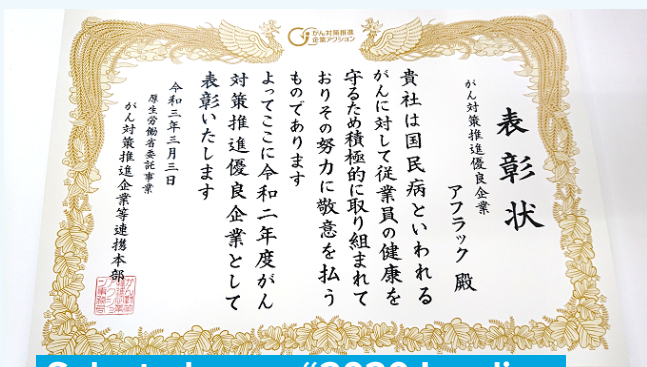 がん対策推進
企業アクション
表彰状
がん対策推進優良企業
アフラック 殿
貴社は国民病といわれる
がんに対して従業員の健康を
守るため積極的に取り組まれて
おりその努力に敬意を払う
ものであります
よってここに令和二年度がん
対策推進優良企業として
表彰いたします
令和三年三月三日
厚生労働省委託事業
がん対策推進企業等連携本部